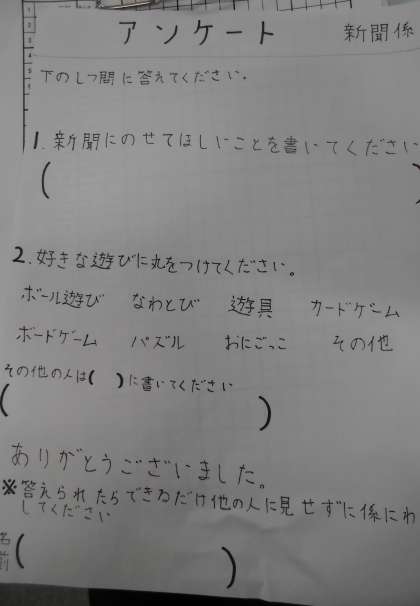 アンケート 新聞係
下のしつ問に答えてください。
1. 新聞にのせてほしいことを書いてください
( )
2. 好きな遊びに丸をつけてください。
ボール遊び なわとび 遊具 カードゲーム
ボードゲーム パズル おにごっこ その他
その他の人は( )に書いてください
( )
ありがとうございました。
※答えられたらできるだけ他の人に見せずに係にわ
してください
名前( )